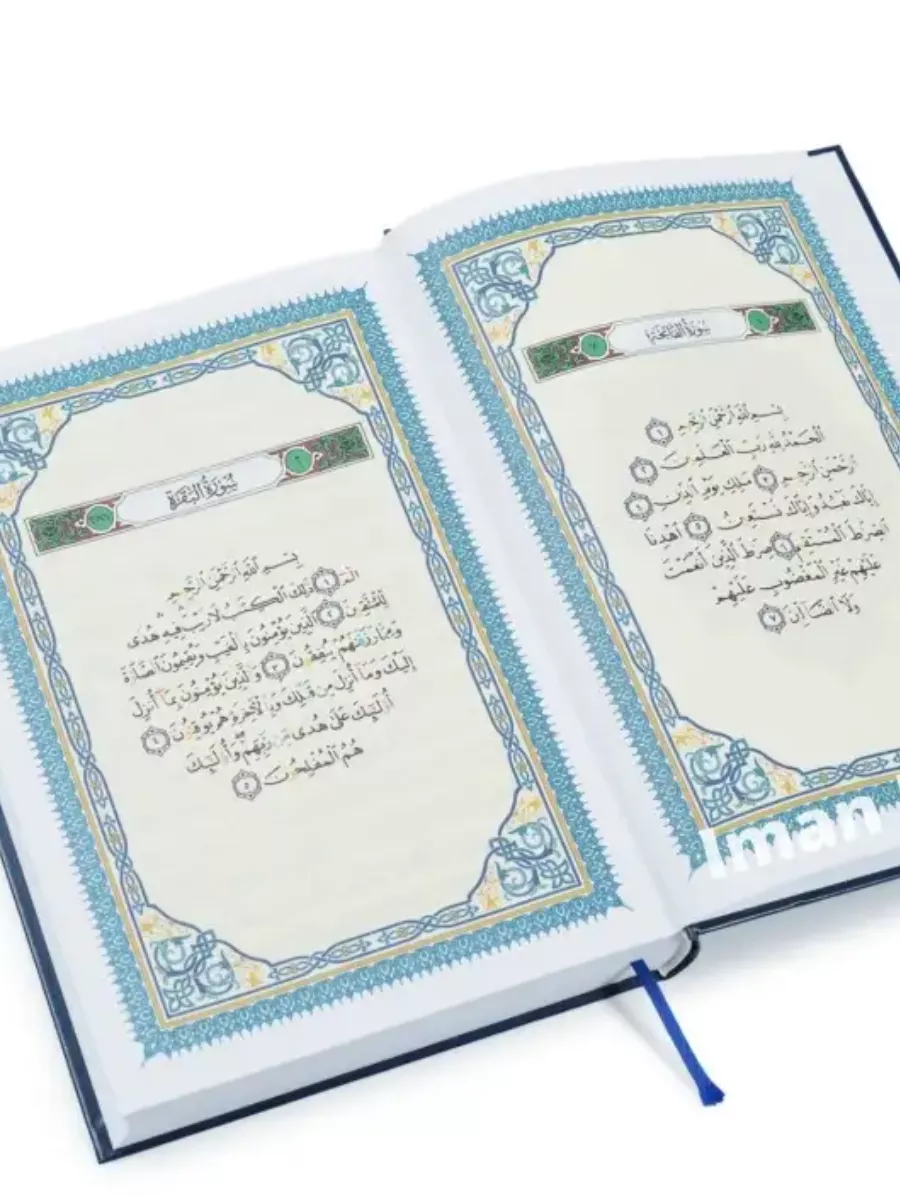 سُورَةُ الفَاتِحَةِ
بِسْمِ اللَّهِ الرَّحْمَٰنِ الرَّحِيمِ ١
الْحَمْدُ لِلَّهِ رَبِّ الْعَالَمِينَ ٢
الرَّحْمَٰنِ الرَّحِيمِ ٣ مَالِكِ يَوْمِ الدِّينِ ٤
إِيَّاكَ نَعْبُدُ وَإِيَّاكَ نَسْتَعِينُ ٥ اهْدِنَا
الصِّرَاطَ الْمُسْتَقِيمَ ٦ صِرَاطَ الَّذِينَ أَنْعَمْتَ
عَلَيْهِمْ غَيْرِ الْمَغْضُوبِ عَلَيْهِمْ
وَلَا الضَّالِّينَ ٧
سُورَةُ البَقَرَةِ
بِسْمِ اللَّهِ الرَّحْمَٰنِ الرَّحِيمِ
الٓمٓ ١ ذَٰلِكَ الْكِتَابُ لَا رَيْبَ فِيهِ هُدًى
لِّلْمُتَّقِينَ ٢ الَّذِينَ يُؤْمِنُونَ بِالْغَيْبِ وَيُقِيمُونَ الصَّلَاةَ
وَمِمَّا رَزَقْنَاهُمْ يُنفِقُونَ ٣ وَالَّذِينَ يُؤْمِنُونَ بِمَا أُنزِلَ
إِلَيْكَ وَمَا أُنزِلَ مِن قَبْلِكَ وَبِالْآخِرَةِ هُمْ يُوقِنُونَ ٤
أُولَٰئِكَ عَلَىٰ هُدًى مِّن رَّبِّهِمْ وَأُولَٰئِكَ
هُمُ الْمُفْلِحُونَ ٥
Iman